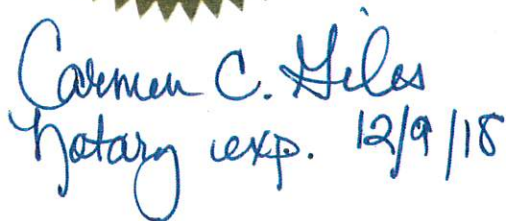 Carmen C. Giles
Notary exp. 12/9/18